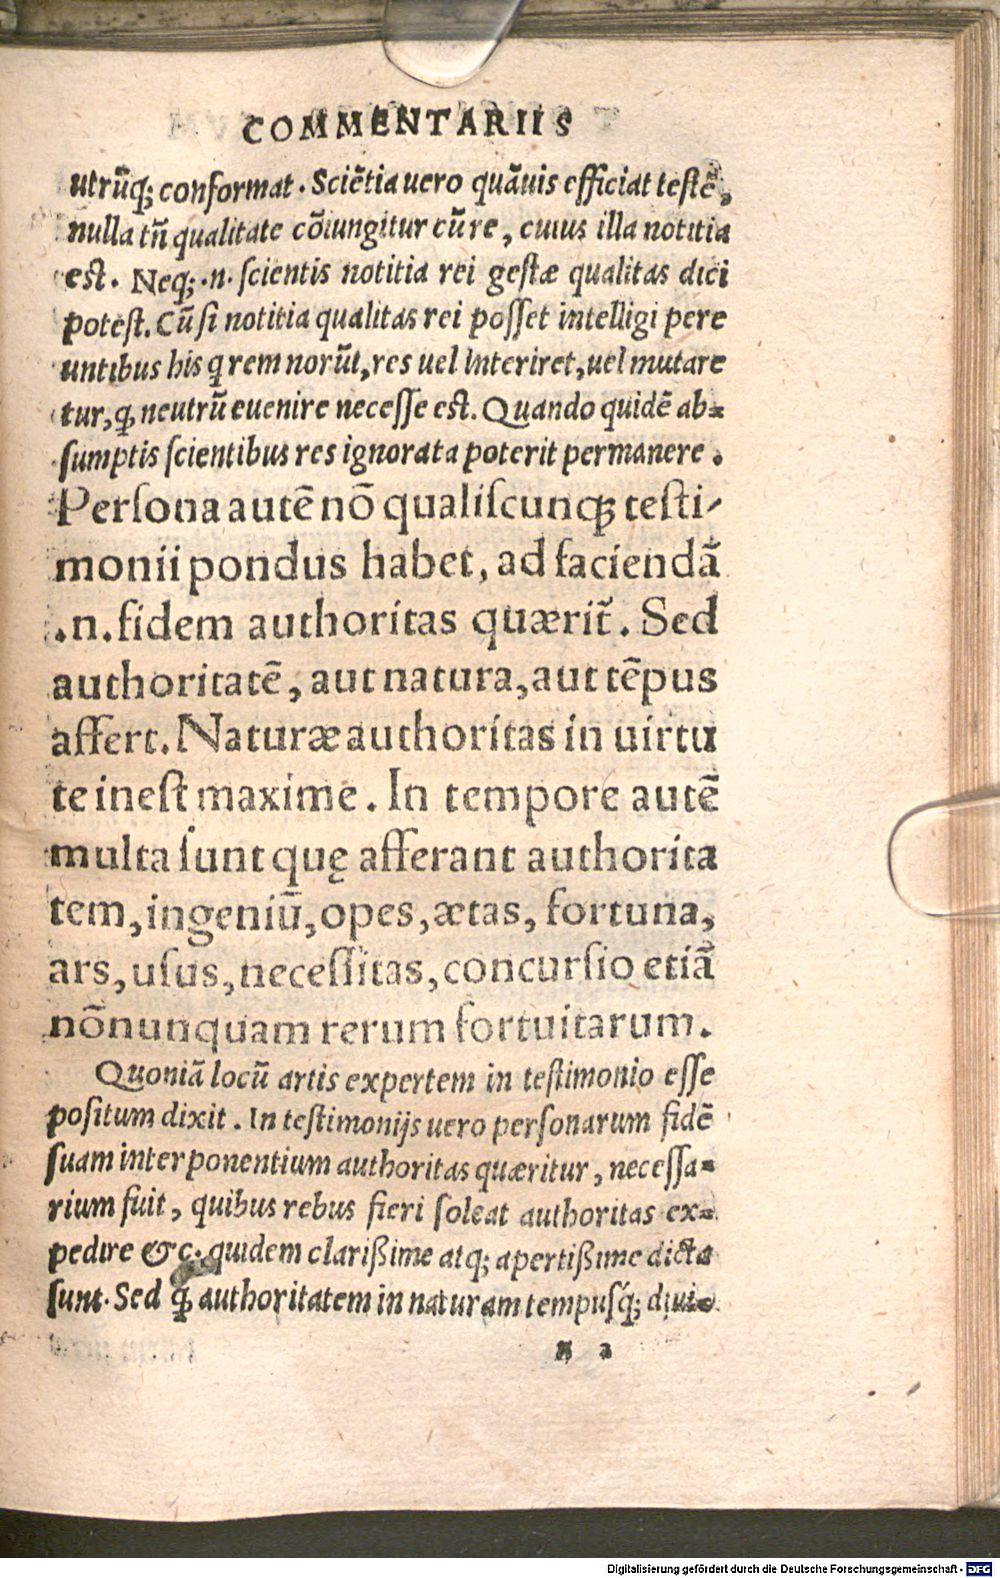 COMMENTARIIS
utrũq; conformat. Sciẽtia uero quãuis efficiat testẽ,
nulla tñ qualitate cõiungitur cũ re, cuius illa notitia
est. Neq; .n. scientis notitia rei gestæ qualitas dici
potest. Cũ si notitia qualitas rei posset intelligi pere
untibus his q rem norũt, res uel interiret, uel mutare
tur, q neutrũ euenire necesse est. Quando quidẽ ab-
sumptis scientibus res ignorata poterit permanere.
Persona autẽ nõ qualiscunq; testi-
monii pondus habet, ad faciendã
.n. fidem authoritas quærit̃. Sed
authoritatẽ, aut natura, aut tẽpus
affert. Naturæ authoritas in uirtu
te inest maxime. In tempore autẽ
multa sunt quę afferant authorita
tem, ingeniũ, opes, ætas, fortuna,
ars, usus, necessitas, concursio etiã
nõnunquam rerum fortuitarum.
Quoniã locũ artis expertem in testimonio esse
positum dixit. In testimonijs uero personarum fidẽ
suam interponentium authoritas quæritur, necessa-
rium fuit, quibus rebus fieri soleat authoritas ex-
pedire &c. quidem clarißime atq; apertißime dicta
sunt. Sed q authoritatem in naturam tempusq́; diui-
N 2
Digitalisierung gefördert durch die Deutsche Forschungsgemeinschaft - DFG